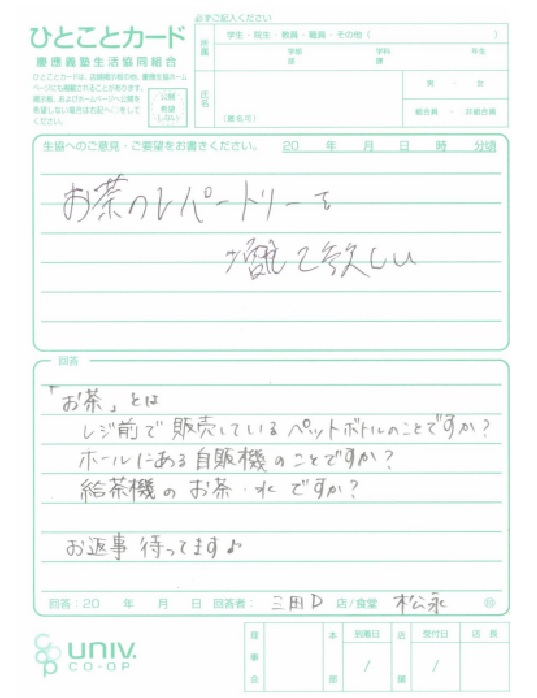 必ずご記入ください
ひとことカード
慶應義塾生活協同組合
ひとことカードは、店舗掲示板の他、慶應生協ホーム
ページにも掲載されることがあります。
掲示板、およびホームページへ公開を
希望しない場合は右記へ○をして
ください。
公開
希望
しない
所属
学生・院生・教員・職員・その他（　　　）
学部　学科　年生
部　課
氏名
（匿名可）
男　・　女
組合員　・　非組合員
生協へのご意見・ご要望をお書きください。　20　年　月　日　時　分頃
お茶のレパートリーを
して欲しい
回答
「お茶」とは
レジ前で販売しているペットボトルのことですか？
ホールにある自販機のことですか？
給茶機のお茶・水ですか？
お返事待ってます♪
回答：20　年　月　日　回答者：　三田D　店/食堂　松永　㊞
UNIV.
CO-OP
理事会
本部
到着日
/
店舗
受付日
/
店長